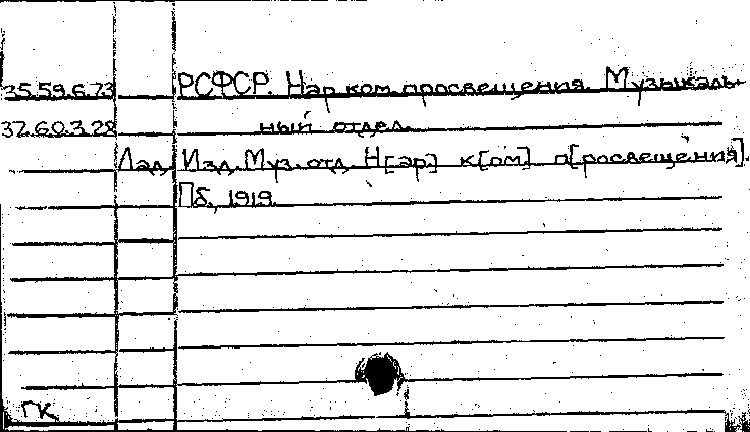 35.59.6.73 РСФСР. Нар. ком. просвещения. Музыкаль-
37.60.3.28 ный отдел.
Лад. Изд. Муз. отд. Н[ар] к[ом] п[росвещения].
Пб., 1919.
ГК